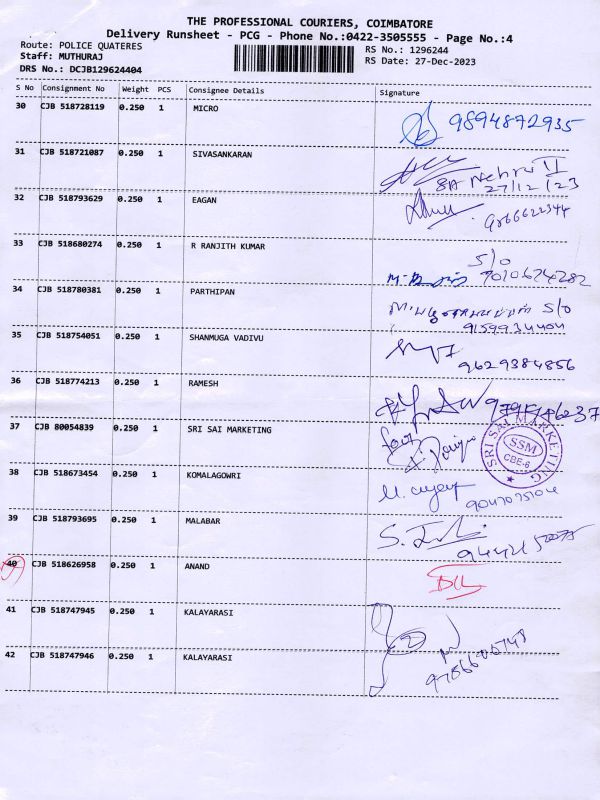 THE PROFESSIONAL COURIERS, COIMBATORE
Delivery Runsheet - PCG - Phone No.:0422-3505555 - Page No.:4
Route: POLICE QUATERES RS No.: 1296244
Staff: MUTHURAJ RS Date: 27-Dec-2023
DRS No.: DCJB129624404
S No Consignment No Weight PCS Consignee Details Signature
30 CJB 518728119 0.250 1 MICRO 9894872935
31 CJB 518721087 0.250 1 SIVASANKARAN
27/12/23
32 CJB 518793629 0.250 1 EAGAN 9566622344
33 CJB 518680274 0.250 1 R RANJITH KUMAR S/O
7010674282
34 CJB 518780381 0.250 1 PARTHIPAN S/O
9159934404
35 CJB 518754051 0.250 1 SHANMUGA VADIVU
9629384856
36 CJB 518774213 0.250 1 RAMESH
37 CJB 80054839 0.250 1 SRI SAI MARKETING
SRI SAI MARKETING
SSM
CBE-6
38 CJB 518673454 0.250 1 KOMALAGOWRI
39 CJB 518793695 0.250 1 MALABAR
40 CJB 518626958 0.250 1 ANAND
41 CJB 518747945 0.250 1 KALAYARASI
42 CJB 518747946 0.250 1 KALAYARASI